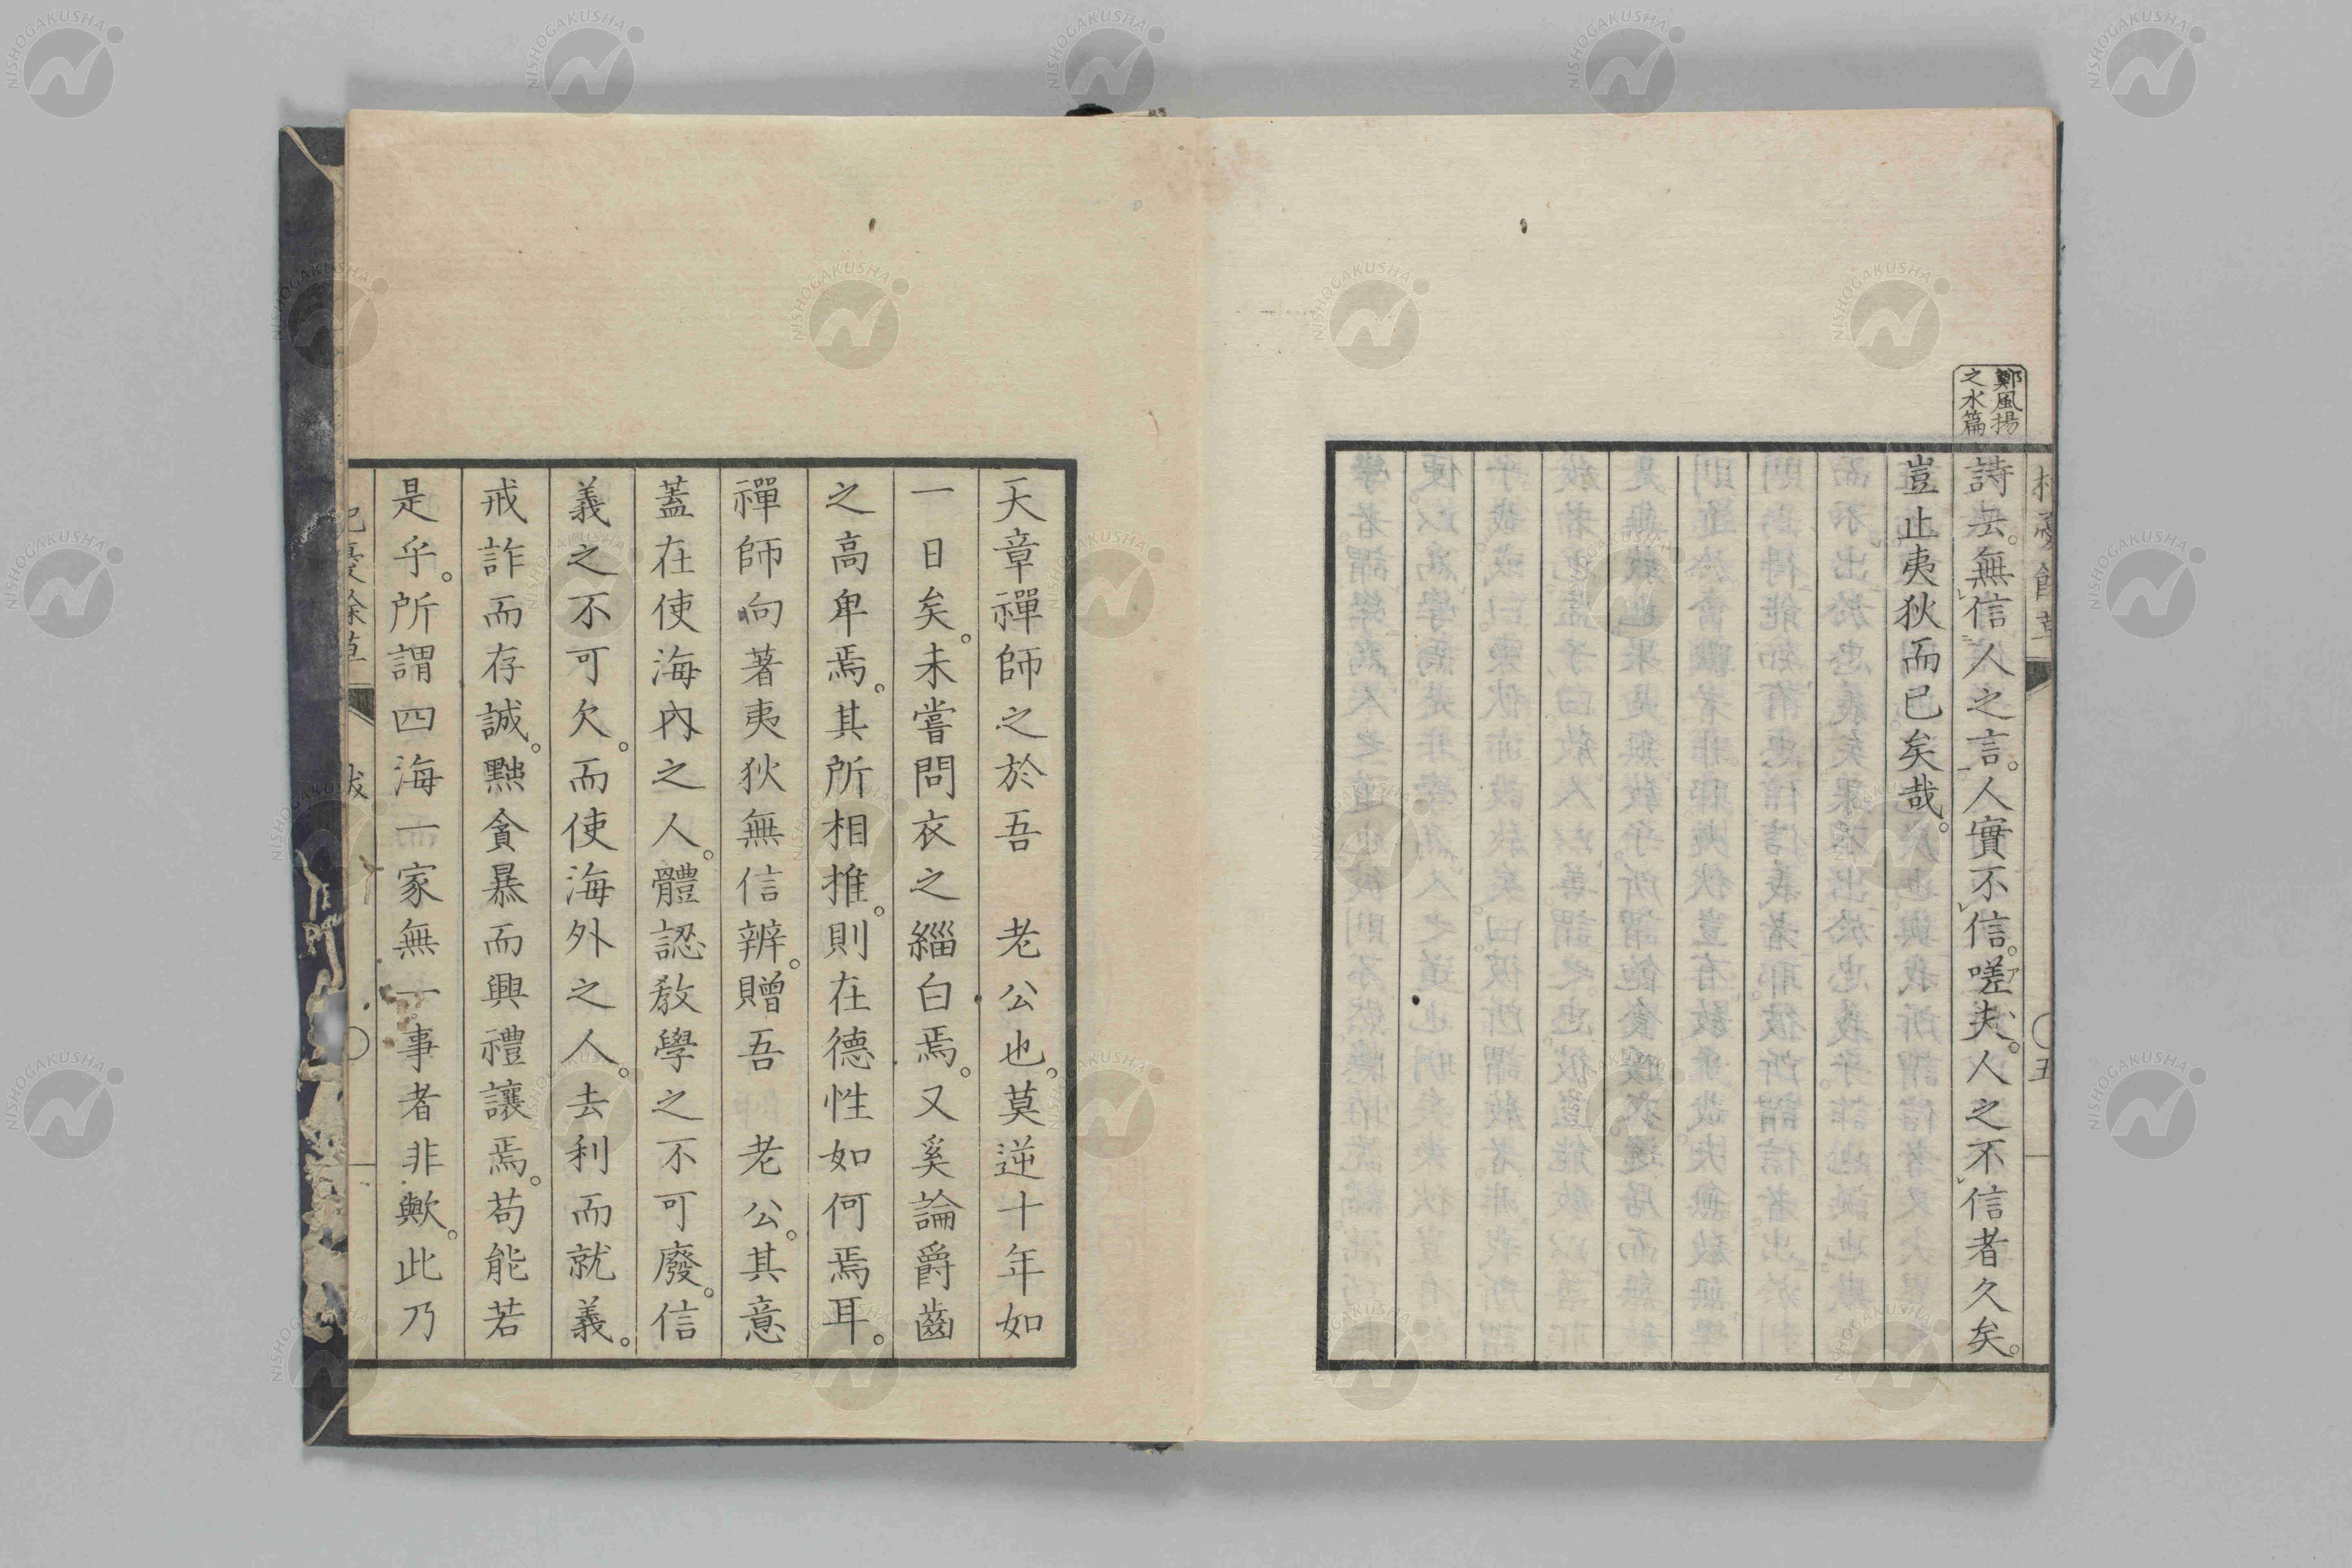 鄭風揚
之水篇
詩云。無信人之言。人實不信。嗟夫。人之不信者久矣。
豈止夷狄而已矣哉。
五
天章禪師之於吾　老公也。莫逆十年如
一日矣。未嘗問衣之緇白焉。又奚論爵齒
之高卑焉。其所相推。則在德性如何焉耳。
禪師向著夷狄無信辨。贈吾　老公。其意
蓋在使海內之人。體認教學之不可廢。信
義之不可欠。而使海外之人。去利而就義。
戒詐而存誠。黜貪暴而興禮讓焉。苟能若
是乎。所謂四海一家無一事者非歟。此乃
跋
NISHOGAKUSHA